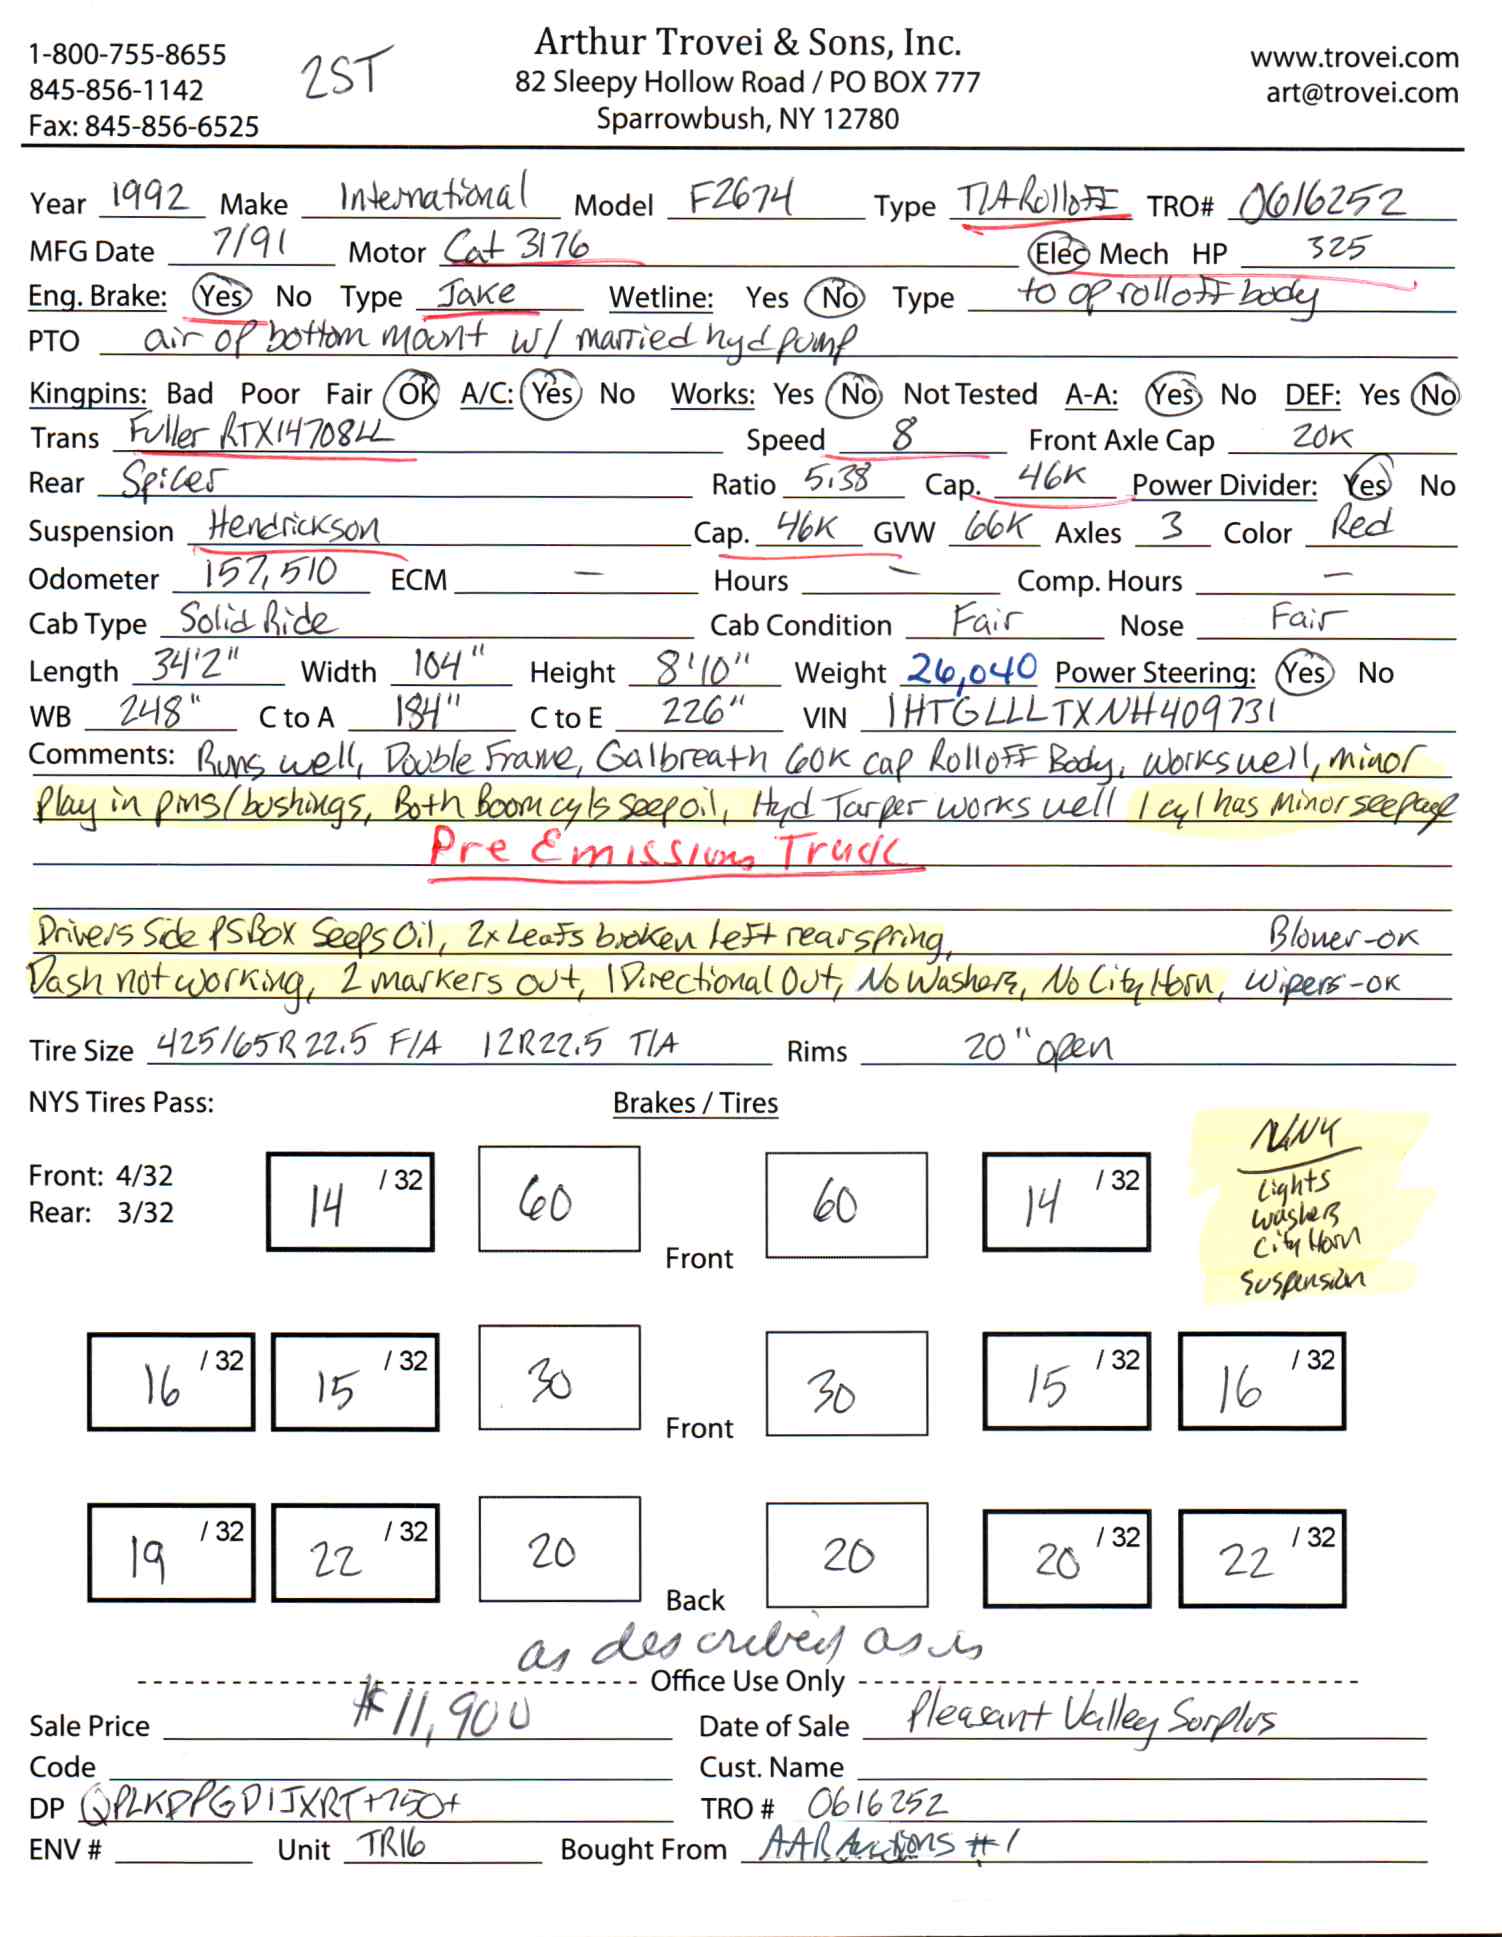 1-800-755-8655
845-856-1142
Fax: 845-856-6525
2ST
Arthur Trovei & Sons, Inc.
82 Sleepy Hollow Road / PO BOX 777
Sparrowbush, NY 12780
www.trovei.com
art@trovei.com
Year 1992 Make International Model F2674 Type T/A Rolloff TRO# 0616252
MFG Date 7/91 Motor Cat 3176 Elec Mech HP 325
Eng. Brake: Yes No Type Jake Wetline: Yes No Type to op rolloff body
PTO air op bottom mount w/ married hyd pump
Kingpins: Bad Poor Fair OK A/C: Yes No Works: Yes No Not Tested A-A: Yes No DEF: Yes No
Trans Fuller RTX14708LL Speed 8 Front Axle Cap 20K
Rear Spicer Ratio 5.38 Cap. 46K Power Divider: Yes No
Suspension Hendrickson Cap. 46K GVW 66K Axles 3 Color Red
Odometer 157,510 ECM – Hours – Comp. Hours –
Cab Type Solid Ride Cab Condition Fair Nose Fair
Length 34'2" Width 104" Height 8'10" Weight 26,040 Power Steering: Yes No
WB 248" C to A 184" C to E 226" VIN 1HTGLLLTXNH409731
Comments: Runs well, Double Frame, Galbreath 60K cap Rolloff Body, works well, minor
Play in pins/bushings, Both Boom cyls seep oil, Hyd Tarper works well 1 cyl has minor seepage
Pre Emissions Truck
Drivers Side PS Box Seeps Oil, 2x Leafs broken left rear spring, Blower-ok
Dash not working, 2 markers out, 1 Directional Out, No Washers, No City Horn, Wipers-ok
Tire Size 425/65R22.5 F/A 12R22.5 T/A Rims 20" open
NYS Tires Pass: Brakes / Tires
Front: 4/32
Rear: 3/32
14 /32 60 Front 60 14 /32
Lights
Washers
City Horn
Suspension
16 /32 15 /32 30 Front 30 15 /32 16 /32
19 /32 22 /32 20 Back 20 20 /32 22 /32
as described as is
Office Use Only
Sale Price $11,900 Date of Sale Pleasant Valley Surplus
Code Cust. Name
DP QPLKPPGDIJXRT+750+ TRO # 0616252
ENV # Unit TR16 Bought From AAR Auctions #1